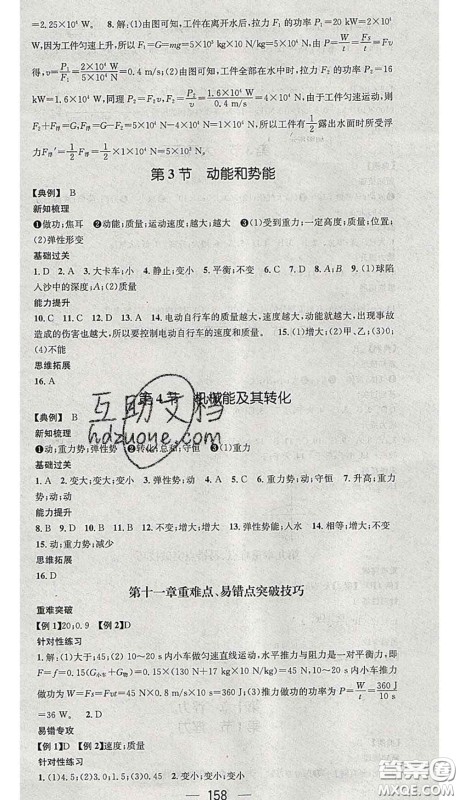 =2.25×10⁴ W. 8.解:(1)由图可知,工件在离开水后,拉力 F₁ 的功率 P₁=20 kW=2×10⁴ W,因为工件匀速上升,所以 F₁=G=mg=5×10³ kg×10 N/kg=5×10⁴ N,由 P=W/t=Fs/t=Fv
得,v=P₁/F₁=2×10⁴ W/5×10⁴ N=0.4 m/s;(2)由图可知,工件全部在水中时,拉力 F₂ 的功率 P₂=16
kW=1.6×10⁴ W,同理 P₂=F₂v,F₂=P₂/v=1.6×10⁴ W/0.4 m/s=4×10⁴ N,由于工件匀速运动,则
F₂+F浮=G,F浮=G-F₂=5×10⁴ N-4×10⁴ N=1×10⁴ N,所以工件有1/2露出水面时所受浮
力F浮′=1/2F浮=1/2×1×10⁴ N=5×10³ N.
第3节 动能和势能
【典例】 B
新知梳理
❶做功;焦耳 ❷动能;质量;运动速度;越大;越大 ❸(1)受到重力;一定高度;质量;位置;
(2)弹性形变
基础过关
1.D 2.A 3.大卡车;小 4.静止;变小 5.平衡;不变 6.C 7.D 8.A;B 9.(1)球陷
入沙中的深度;A;(2)质量
能力提升
10.C 11.C 12.D 13.C 14.电动自行车的质量越大,速度越大,动能就越大,出现事故
造成的伤害也越大,所以要控制电动自行车的速度和质量. 15.(1)增大;(2)甲、乙;(3)0;
(4)不能
思维拓展
16.A
第4节 机械能及其转化
【典例】 B
新知梳理
❶动;重力势;弹性势 ❷转化;总和;守恒
基础过关
1.A 2.变大;变小;变大 3.弹性势;动;变小 4.D 5.A 6.重力势;动;守恒 7.升高;重力
势;动;动
能力提升
8.B 9.D 10.B 11.D 12.不变;增大;增大 13.弹性势能;人水 14.相等;不变;增大
15.动;重力势;减少
思维拓展
16.D
第十一章重难点、易错点突破技巧
重难突破
【例1】20;0.9 【例2】D
针对性练习
1.解:(1)大于;45;(2)10~20 s内小车做匀速直线运动,水平推力与阻力是一对平衡力,即
F=f=0.15(G小车+G物)=0.15×(13 kg×10 N/kg+17 kg×10 N/kg)=45 N,水平推力
做的功为 W=Fs=Fvt=45 N×0.8 m/s×10 s=360 J;(3)推力做功的功率为 P=W/t=360 J/10 s
=36 W. 2.D
易错专攻
【例1】D 【例2】速度;质量
针对性练习
1.(1)4.5;(2)3.0;(3)1.5;0.45 2.变小;变小;变小
158
互助文档
hdzuoye.com
答案圈
MXQE.COM